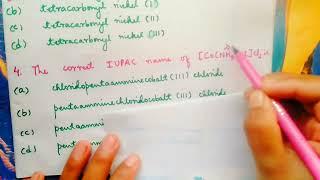 (b) tetracarbonyl nickel (I)
(c) tetracarbonyl nickel (II)
(d) tetracarbonyl nickel (III)
4. The corret IUPAC name of [Co(NH
(a) chloridopentaamminecobalt (III) chloride
(b) pentaamminechloridocobalt (III) chloride
(c) pentaammi
(d) pentaamm